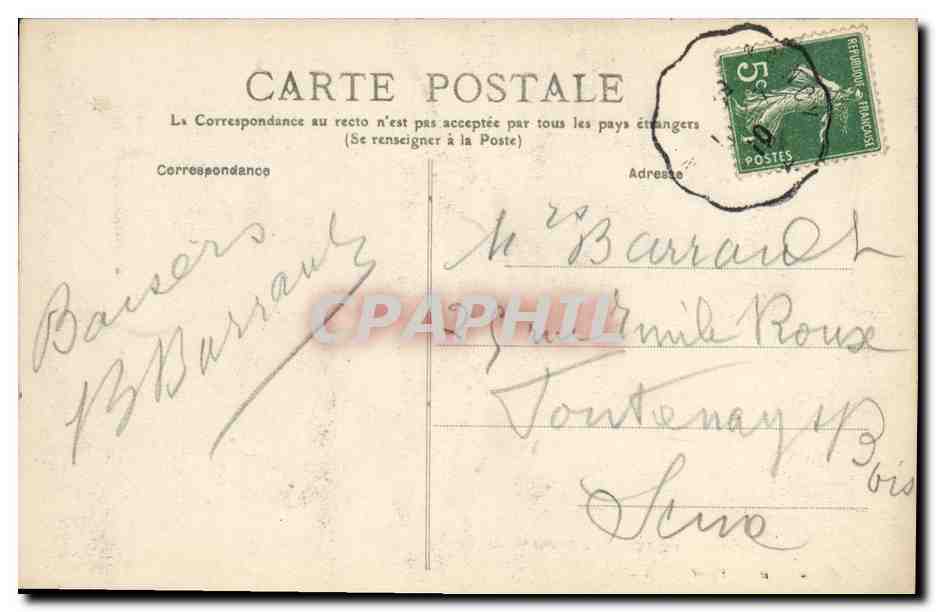 CARTE POSTALE
La Correspondance au recto n'est pas acceptée par tous les pays étrangers
(Se renseigner à la Poste)
Correspondance
Adresse
5c
REPUBLIQUE FRANÇAISE
POSTES
10
Baisers
Barrault
Mrs Barrault
25 rue Emile Roux
Fontenay s/ Bois
Seine
CPAPHIL